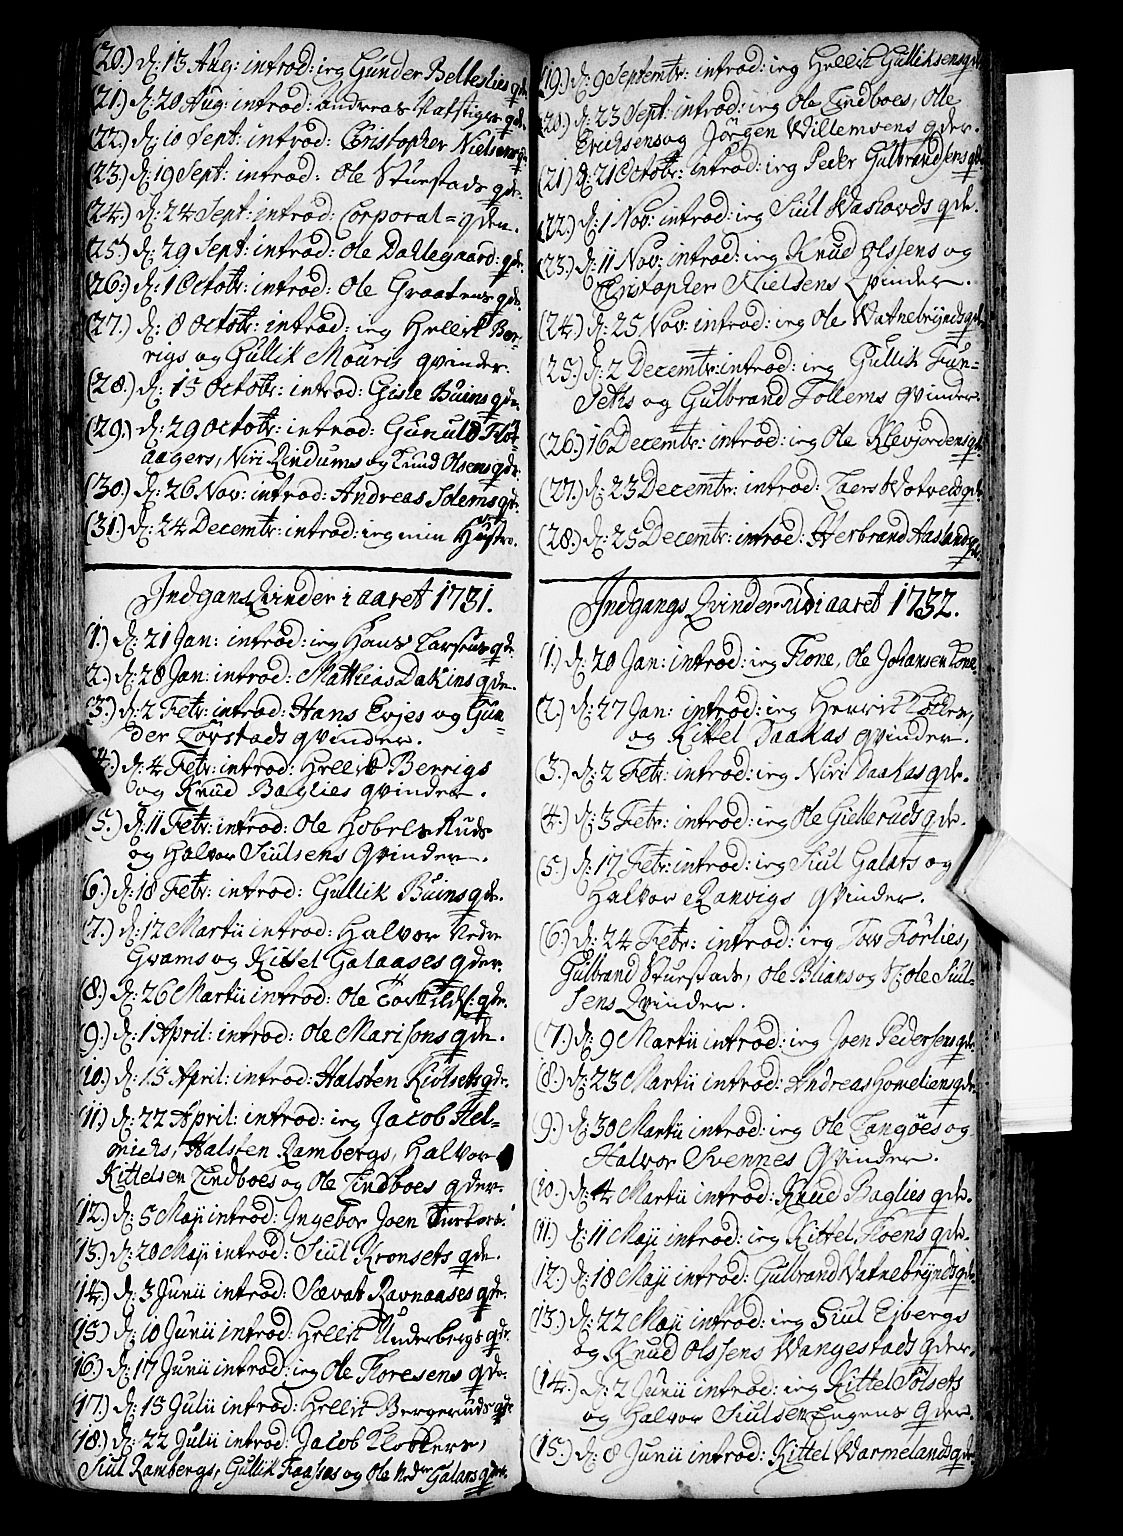 (20.) d: 13 Aug: introd: ieg Gunder Belleslies qde.
(21.) d: 20 Aug: introd: Andreas qde.
(22.) d: 10 Sept: introd: Christopher Nielsens qde.
(23.) d: 19 Sept: introd: Ole Stuestads qde.
(24.) d: 24 Sept: introd: Corporal = qden.
(25.) d: 29 Sept: introd: Ole Dahlegaard: qde.
(26.) d: 1 Octobr: introd: Ole Graatens qde.
(27.) d: 8 Octobr: introd: ieg Hellik Ber-
rigs og Gullik Mouris qvinder.
(28.) d: 15 Octobr: introd: Gisle Buins qde.
(29.) d: 29 Octobr: introd: Gunuld
aagers, Niri Lindums og Knud Olsens qde.
(30.) d: 26 Nov: introd: Andreas Solems qde.
(31.) d: 24 Decembr: introd: ieg min Hustro.
Indgans Qvinder i aaret 1731.
(1.) d: 21 Jan: introd: ieg Hans Larsens qde.
(2.) d: 28 Jan: introd: Mathias Dakins qde.
(3.) d: 2 Febr: introd: Hans Evjes og Gun-
der Torstads qvinder.
(4.) d: 4 Febr: introd: Hellik Berrigs
og Knud Baglies qvinder.
(5.) d: 11 Febr: introd: Ole Hobels Ruds
og Halvor Siulsens Qvinder.
(6.) d: 18 Febr: introd: Gullik Buins qde.
(7.) d: 12 Martii introd: Halvor Nedre
Grams og Kittel Galaases qder.
(8.) d: 26 Martii introd: Ole Torkilds: qde.
(9.) d: 1 April: introd: Ole Marisons qde.
(10.) d: 15 April: introd: Halsten Kiolsets qde.
(11.) d: 22 April: introd: ieg Jacob Hel-
michs, Halsten Rambergs, Halvor
Kittelsen Lindboes og Ole Lindboes qder.
(12.) d: 5 Maji introd: Ingebor Joen
(13.) d: 20 Maji introd: Siul Kronsets qde.
(14.) d: 3 Junii introd: Sævat Ravnaases qde.
(15.) d: 10 Junii introd: Hellik Underbergs qde.
(16.) d: 17 Junii introd: ieg Ole Floresens qde.
(17.) d: 15 Julii introd: Hellik Bergeruds qde.
(18.) d: 22 Julii introd: Jacob Klokkers,
Siul Rambergs, Gullik Faasas og Ole Nedre Galaas qder.
(19.) d: 9 Septembr: introd: ieg Hellik Gulliksens qde.
(20.) d: 23 Sept: introd: ieg Ole Lindboes, Olle
Erichsens og Jörgen Willemsens qder.
(21) d: 21 Octobr: introd: ieg Peder Gulbrandsens qde.
(22.) d: 1 Nov: introd: ieg Siul Waslovds qde.
(23.) d: 11 Nov: introd: ieg Knud Olssens og
Christopher Nielsens Qvinder.
(24.) d: 25 Nov: introd: ieg Ole Watnebrynds qde.
(25.) d: 2 Decembr: introd: ieg Gullik Fun-
seths og Gulbrand Follems Qvinder.
(26.) 16 Decembr: introd: ieg Ole Klevjordens qde.
(27.) d: 23 Decembr: introd: Laers Wotvelds qde.
(28.) d: 25 Decembr: introd: Herbrand Aaslands qde.
Indgangs Qvinder udi aaret 1732.
(1.) d: 20 Jan: introd: ieg Tone, Ole Johansen Kone.
(2.) d: 27 Jan: introd: ieg Henrik
og Kittel Daakas qvinder.
(3.) d: 2 Febr: introd: ieg Niri Daakas qde.
(4.) d: 3 Febr: introd: ieg Ole Gielleruds qde.
(5.) d: 17 Febr: introd: ieg Siul Galaas og
Halvor Ranvigs Qvinder.
(6.) d: 24 Febr: introd: ieg Tow Förlies,
Gulbrand Stuestads, Ole Blians og Nicole Siul-
sens Qvinder.
(7.) d: 9 Martii introd: ieg Joen Pedersens qde.
(8.) d: 23 Martii introd: Andreas Gomeliens qde.
(9.) d: 30 Martii introd: ieg Ole Langöes og
Halvor Svennes Qvinder.
(10.) d: 4 Martii introd: Knud Baglies qde.
(11.) d: 11 Maji introd: ieg Kittel Floens qde.
(12.) d: 18 Maji introd: Gulbrand Watnebrynds qde.
(13.) d: 22 Maji introd: ieg Siul Ejbergs
og Knud Olssens Wangestads qder.
(14.) d: 2 Junii introd: ieg Kittel Tolsets
og Halvor Siulsen Engens Qder.
(15.) d: 8 Junii introd: Kittel Warmelands qde.